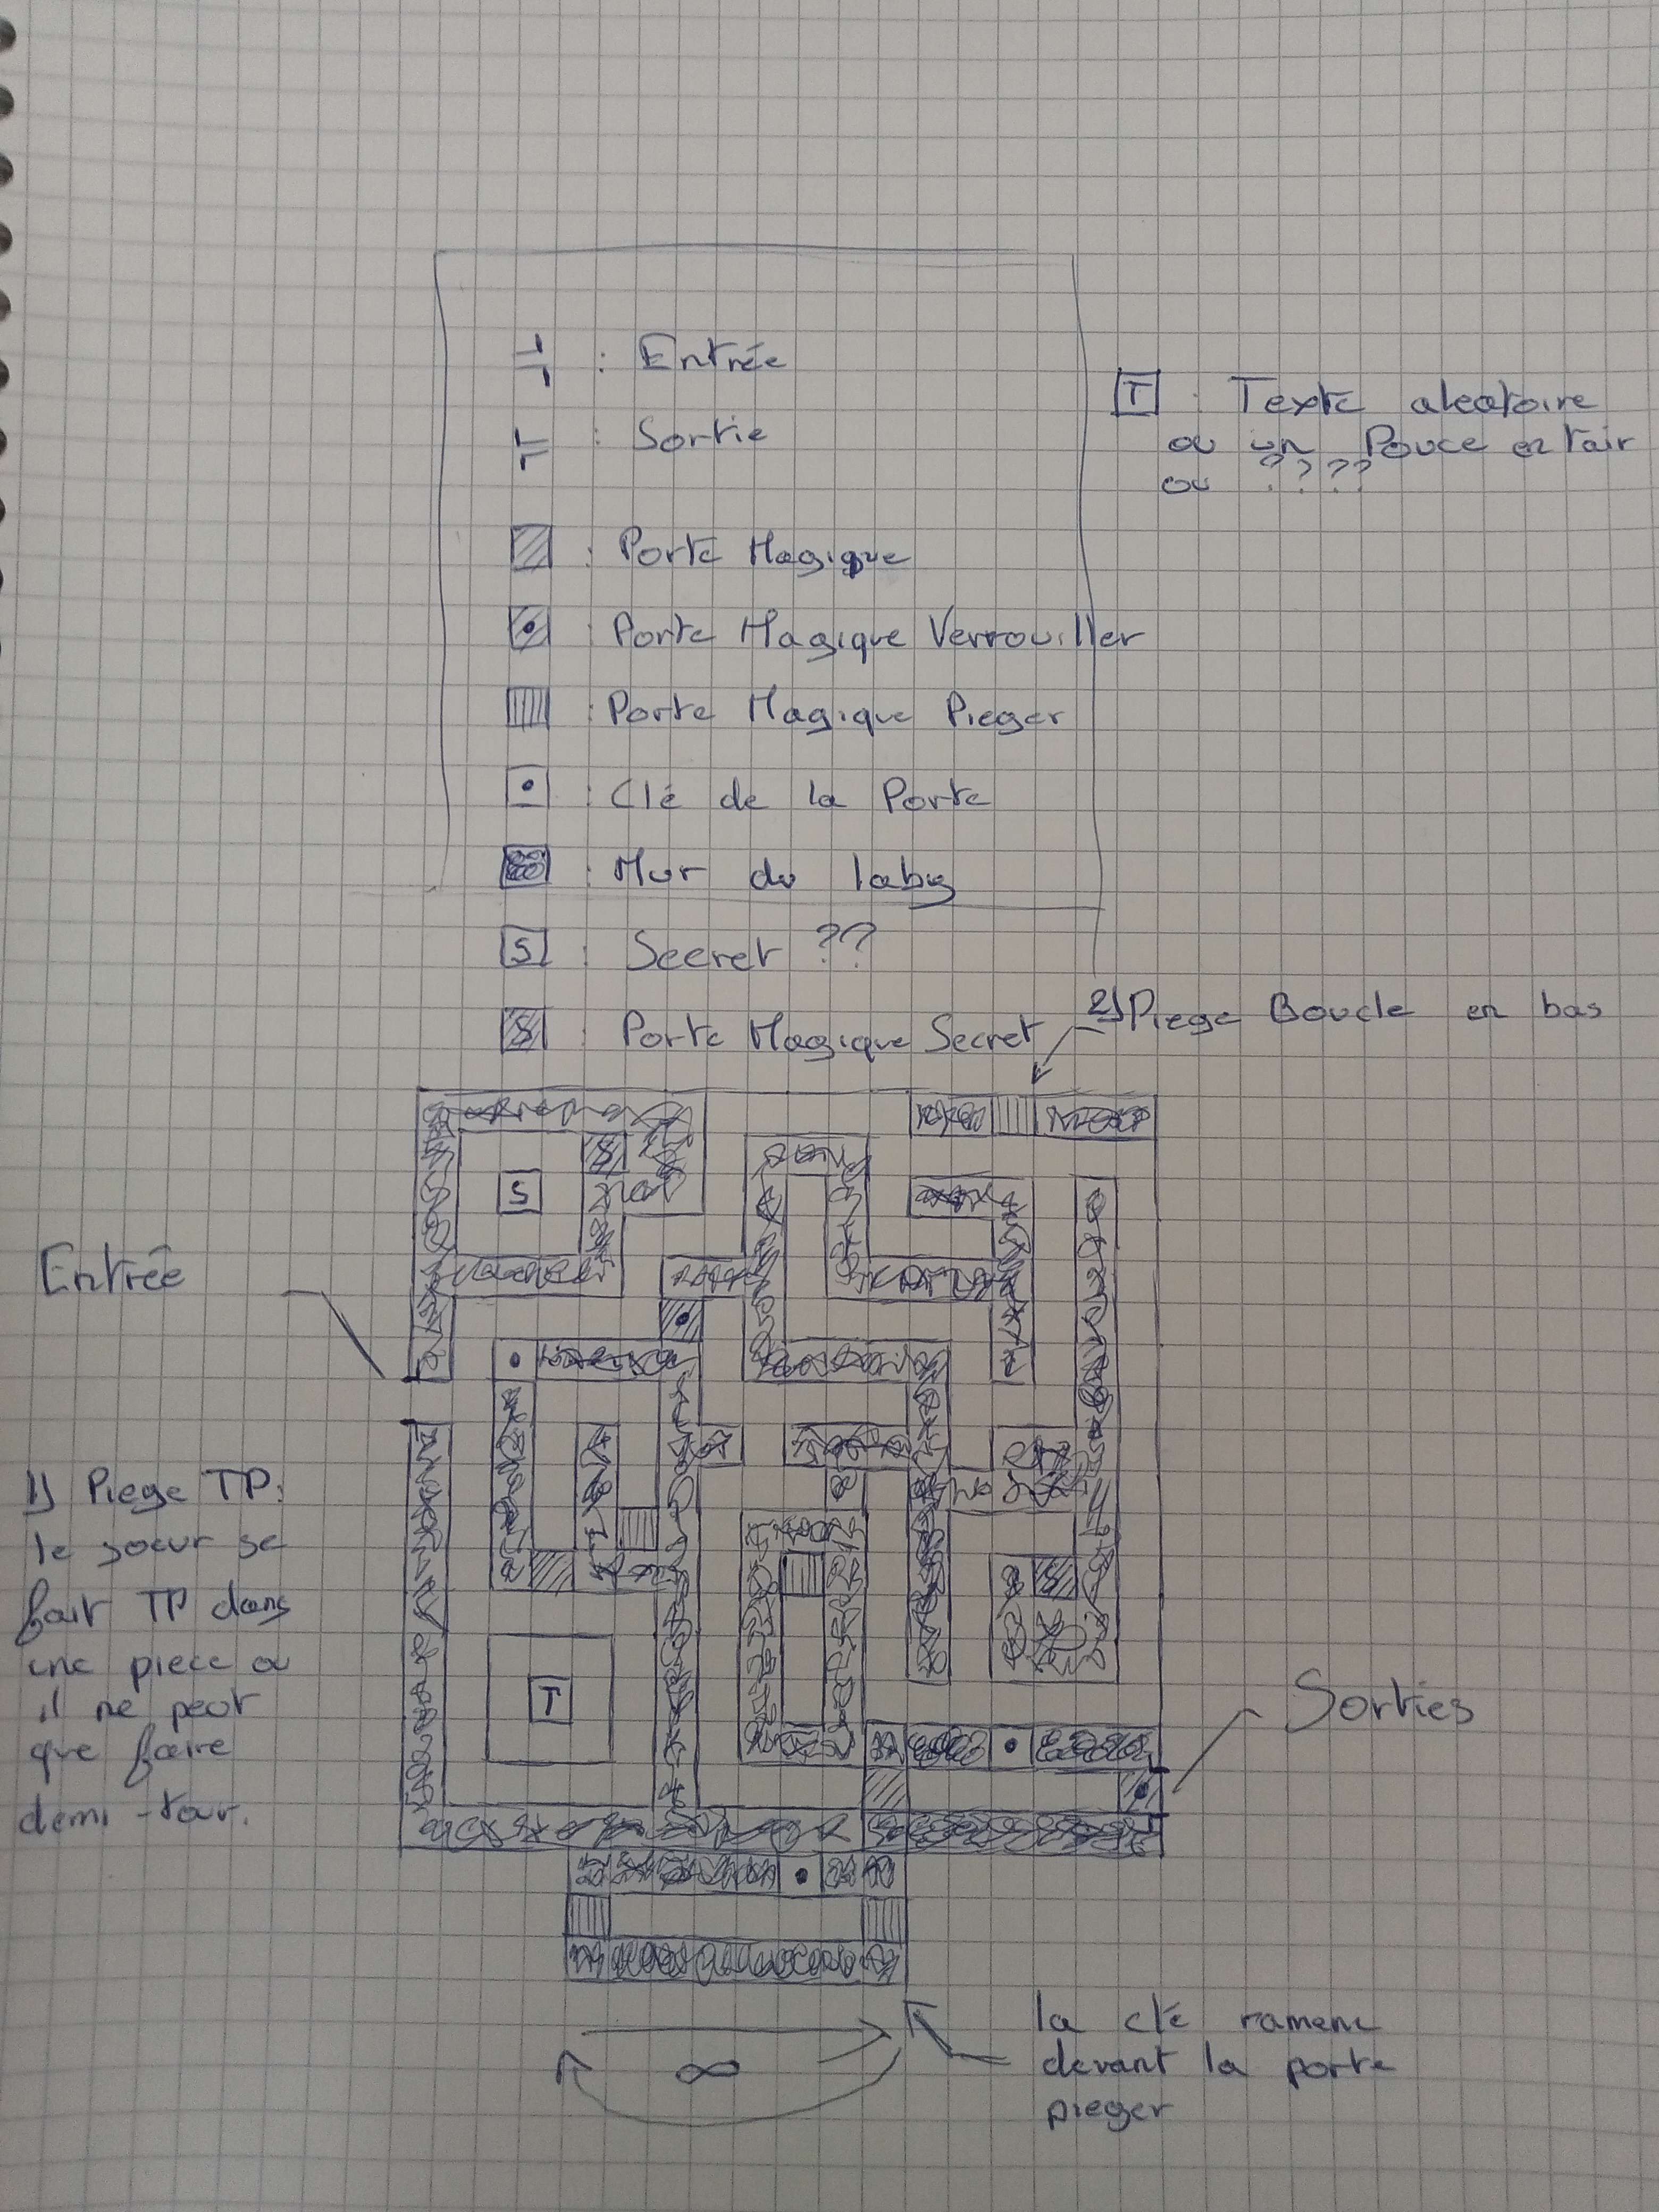 : Entrée
: Sortie
: Porte Magique
: Porte Magique Verrouiller
: Porte Magique Pieger
: Clé de la Porte
: Mur du laby
S : Secret ??
S : Porte Magique Secret
T : Texte aleatoire
ou un Pouce en l'air
ou ????
2) Piege Boucle en bas
S
S
Entrée
1) Piege TP:
le joeur se
fait TP dans
une piece ou
il ne peut
que faire
demi-tour.
S
T
Sorties
∞
la clé ramene
devant la porte
pieger